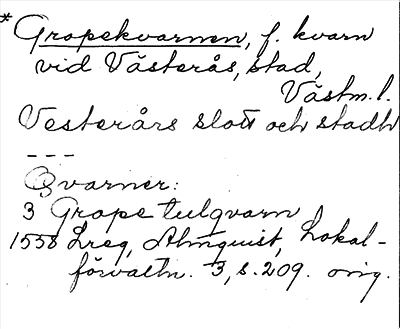 * Gropekvarnen, f. kvarn
vid Västerås, stad,
Västm. l.
Vesterårs slott och stadh
---
Qvarner:
3 Grope tulqvarn
1558 Lreg, Almquist, Lokal-
förvaltn. 3, s. 209. orig.